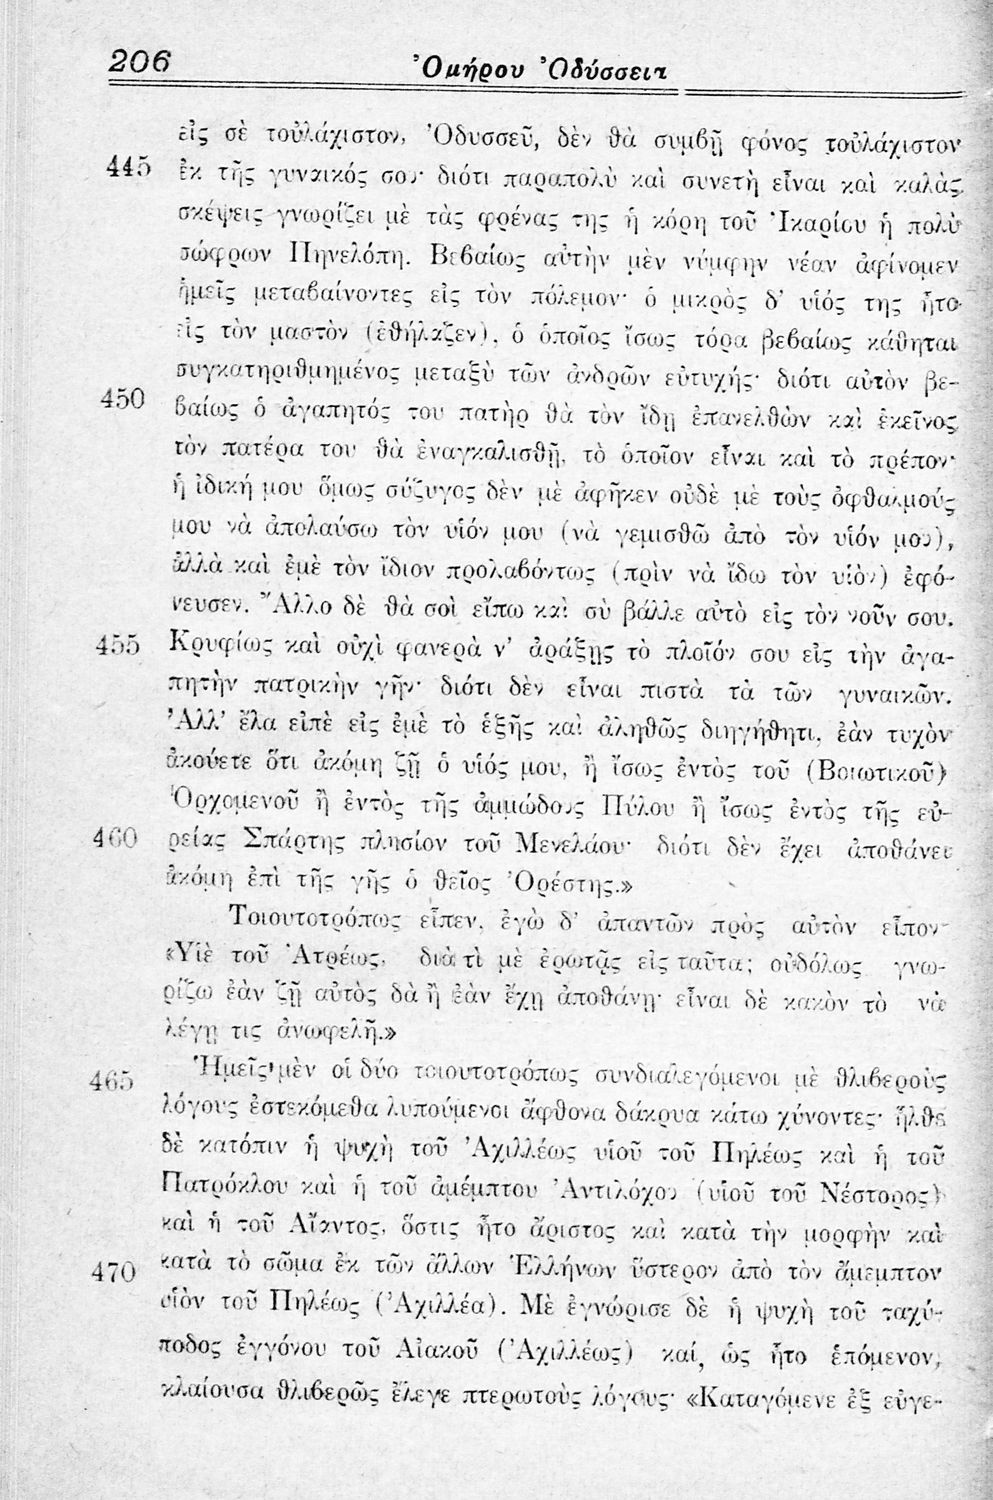 206
Ὁμήρου Ὀδύσσεια
εἰς σὲ τοὐλάχιστον, Ὀδυσσεῦ, δὲν θὰ συμβῇ φόνος τοὐλάχιστον
445 ἐκ τῆς γυναικός σου· διότι παραπολὺ καὶ συνετὴ εἶναι καὶ καλὰς
σκέψεις γνωρίζει μὲ τὰς φρένας της ἡ κόρη τοῦ Ἰκαρίου ἡ πολὺ
σώφρων Πηνελόπη. Βεβαίως αὐτὴν μὲν νύμφην νέαν ἀφίνομεν
ἡμεῖς μεταβαίνοντες εἰς τὸν πόλεμον· ὁ μικρὸς δ' υἱός της ἦτο
εἰς τὸν μαστὸν (ἐθήλαζεν), ὁ ὁποῖος ἴσως τόρα βεβαίως κάθηται
συγκατηριθμημένος μεταξὺ τῶν ἀνδρῶν εὐτυχής· διότι αὐτὸν βε-
450 βαίως ὁ ἀγαπητός του πατὴρ θὰ τὸν ἴδῃ ἐπανελθὼν καὶ ἐκεῖνος
τὸν πατέρα του θὰ ἐναγκαλισθῇ, τὸ ὁποῖον εἶναι καὶ τὸ πρέπον·
ἡ ἰδική μου ὅμως σύζυγος δὲν μὲ ἀφῆκεν οὐδὲ μὲ τοὺς ὀφθαλμούς
μου νὰ ἀπολαύσω τὸν υἱόν μου (νὰ γεμισθῶ ἀπὸ τὸν υἱόν μου),
ἀλλὰ καὶ ἐμὲ τὸν ἴδιον προλαβόντως (πρὶν νὰ ἴδω τὸν υἱὸν) ἐφό-
νευσεν. Ἄλλο δὲ θὰ σοὶ εἴπω καὶ σὺ βάλλε αὐτὸ εἰς τὸν νοῦν σου.
455 Κρυφίως καὶ οὐχὶ φανερὰ ν' ἀράξῃς τὸ πλοῖόν σου εἰς τὴν ἀγα-
πητὴν πατρικὴν γῆν· διότι δὲν εἶναι πιστὰ τὰ τῶν γυναικῶν.
Ἀλλ' ἔλα εἰπὲ εἰς ἐμὲ τὸ ἑξῆς καὶ ἀληθῶς διηγήθητι, ἐὰν τυχὸν
ἀκούετε ὅτι ἀκόμη ζῇ ὁ υἱός μου, ἢ ἴσως ἐντὸς τοῦ (Βοιωτικοῦ)
Ὀρχομενοῦ ἢ ἐντὸς τῆς ἀμμώδους Πύλου ἢ ἴσως ἐντὸς τῆς εὐ-
460 ρείας Σπάρτης πλησίον τοῦ Μενελάου· διότι δὲν ἔχει ἀποθάνει
ἀκόμη ἐπὶ τῆς γῆς ὁ θεῖος Ὀρέστης.»
Τοιουτοτρόπως εἶπεν, ἐγὼ δ' ἀπαντῶν πρὸς αὐτὸν εἶπον·
«Υἱὲ τοῦ Ἀτρέως, διὰ τὶ μὲ ἐρωτᾷς εἰς ταῦτα; οὐδόλως γνω-
ρίζω ἐὰν ζῇ αὐτὸς δὰ ἢ ἐὰν ἔχῃ ἀποθάνῃ· εἶναι δὲ κακὸν τὸ νὰ
λέγῃ τις ἀνωφελῆ.»
465 Ἡμεῖς μὲν οἱ δύο τοιουτοτρόπως συνδιαλεγόμενοι μὲ θλιβεροὺς
λόγους ἐστεκόμεθα λυπούμενοι ἄφθονα δάκρυα κάτω χύνοντες· ἦλθε
δὲ κατόπιν ἡ ψυχὴ τοῦ Ἀχιλλέως υἱοῦ τοῦ Πηλέως καὶ ἡ τοῦ
Πατρόκλου καὶ ἡ τοῦ ἀμέμπτου Ἀντιλόχου (υἱοῦ τοῦ Νέστορος)
καὶ ἡ τοῦ Αἴαντος, ὅστις ἦτο ἄριστος καὶ κατὰ τὴν μορφὴν καὶ
470 κατὰ τὸ σῶμα ἐκ τῶν ἄλλων Ἑλλήνων ὕστερον ἀπὸ τὸν ἄμεμπτον
υἱὸν τοῦ Πηλέως (Ἀχιλλέα). Μὲ ἐγνώρισε δὲ ἡ ψυχὴ τοῦ ταχύ-
ποδος ἐγγόνου τοῦ Αἰακοῦ (Ἀχιλλέως) καί, ὡς ἦτο ἑπόμενον,
κλαίουσα θλιβερῶς ἔλεγε πτερωτοὺς λόγους· «Καταγόμενε ἐξ εὐγε-